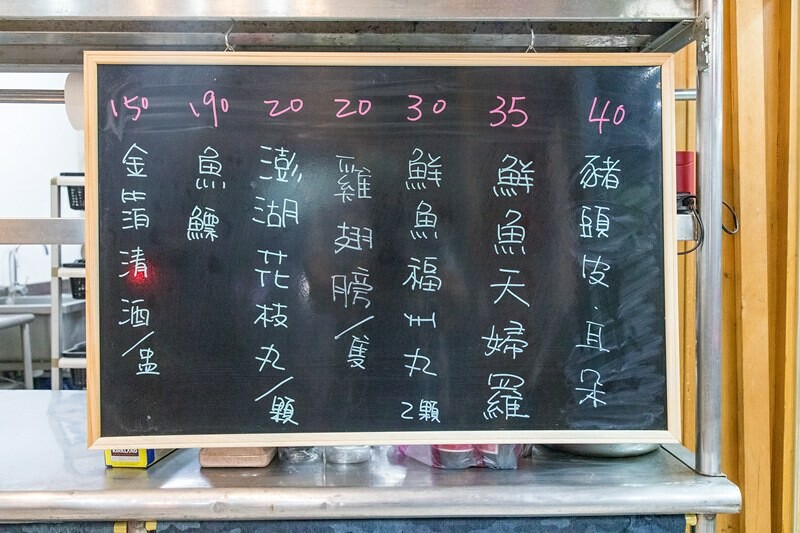 40 豬頭皮、耳朵
35 鮮魚天婦羅
30 鮮魚福州丸2顆
20 雞翅膀/隻
20 澎湖花枝丸/顆
190 魚鰾
150 金箔清酒/盅
KIRKLAND